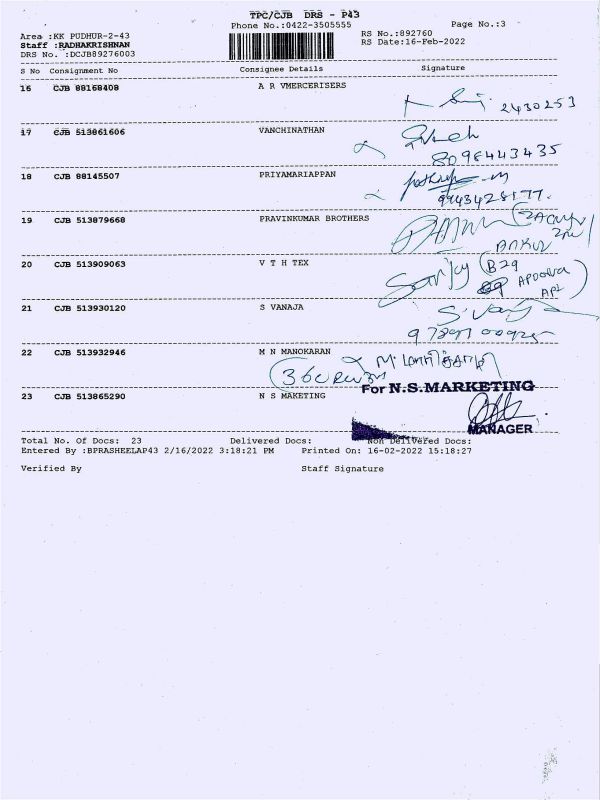 TPC/CJB DRS - P43
Phone No.:0422-3505555 Page No.:3
Area :KK PUDHUR-2-43 RS No.:892760
Staff :RADHAKRISHNAN RS Date:16-Feb-2022
DRS No. :DCJB89276003
S No Consignment No Consignee Details Signature
16 CJB 88168408 A R VMERCERISERS
2430253
17 CJB 513861606 VANCHINATHAN
8098443435
18 CJB 88145507 PRIYAMARIAPPAN
9943428177.
19 CJB 513879668 PRAVINKUMAR BROTHERS
20 CJB 513909063 V T H TEX
Sanjay B29
Apoorva
Apt
21 CJB 513930120 S VANAJA S. Vanaja
22 CJB 513932946 M N MANOKARAN
For N.S.MARKETING
23 CJB 513865290 N S MAKETING
MANAGER
Total No. Of Docs: 23 Delivered Docs: Non Delivered Docs:
Entered By :BPRASHEELAP43 2/16/2022 3:18:21 PM Printed On: 16-02-2022 15:18:27
Verified By Staff Signature